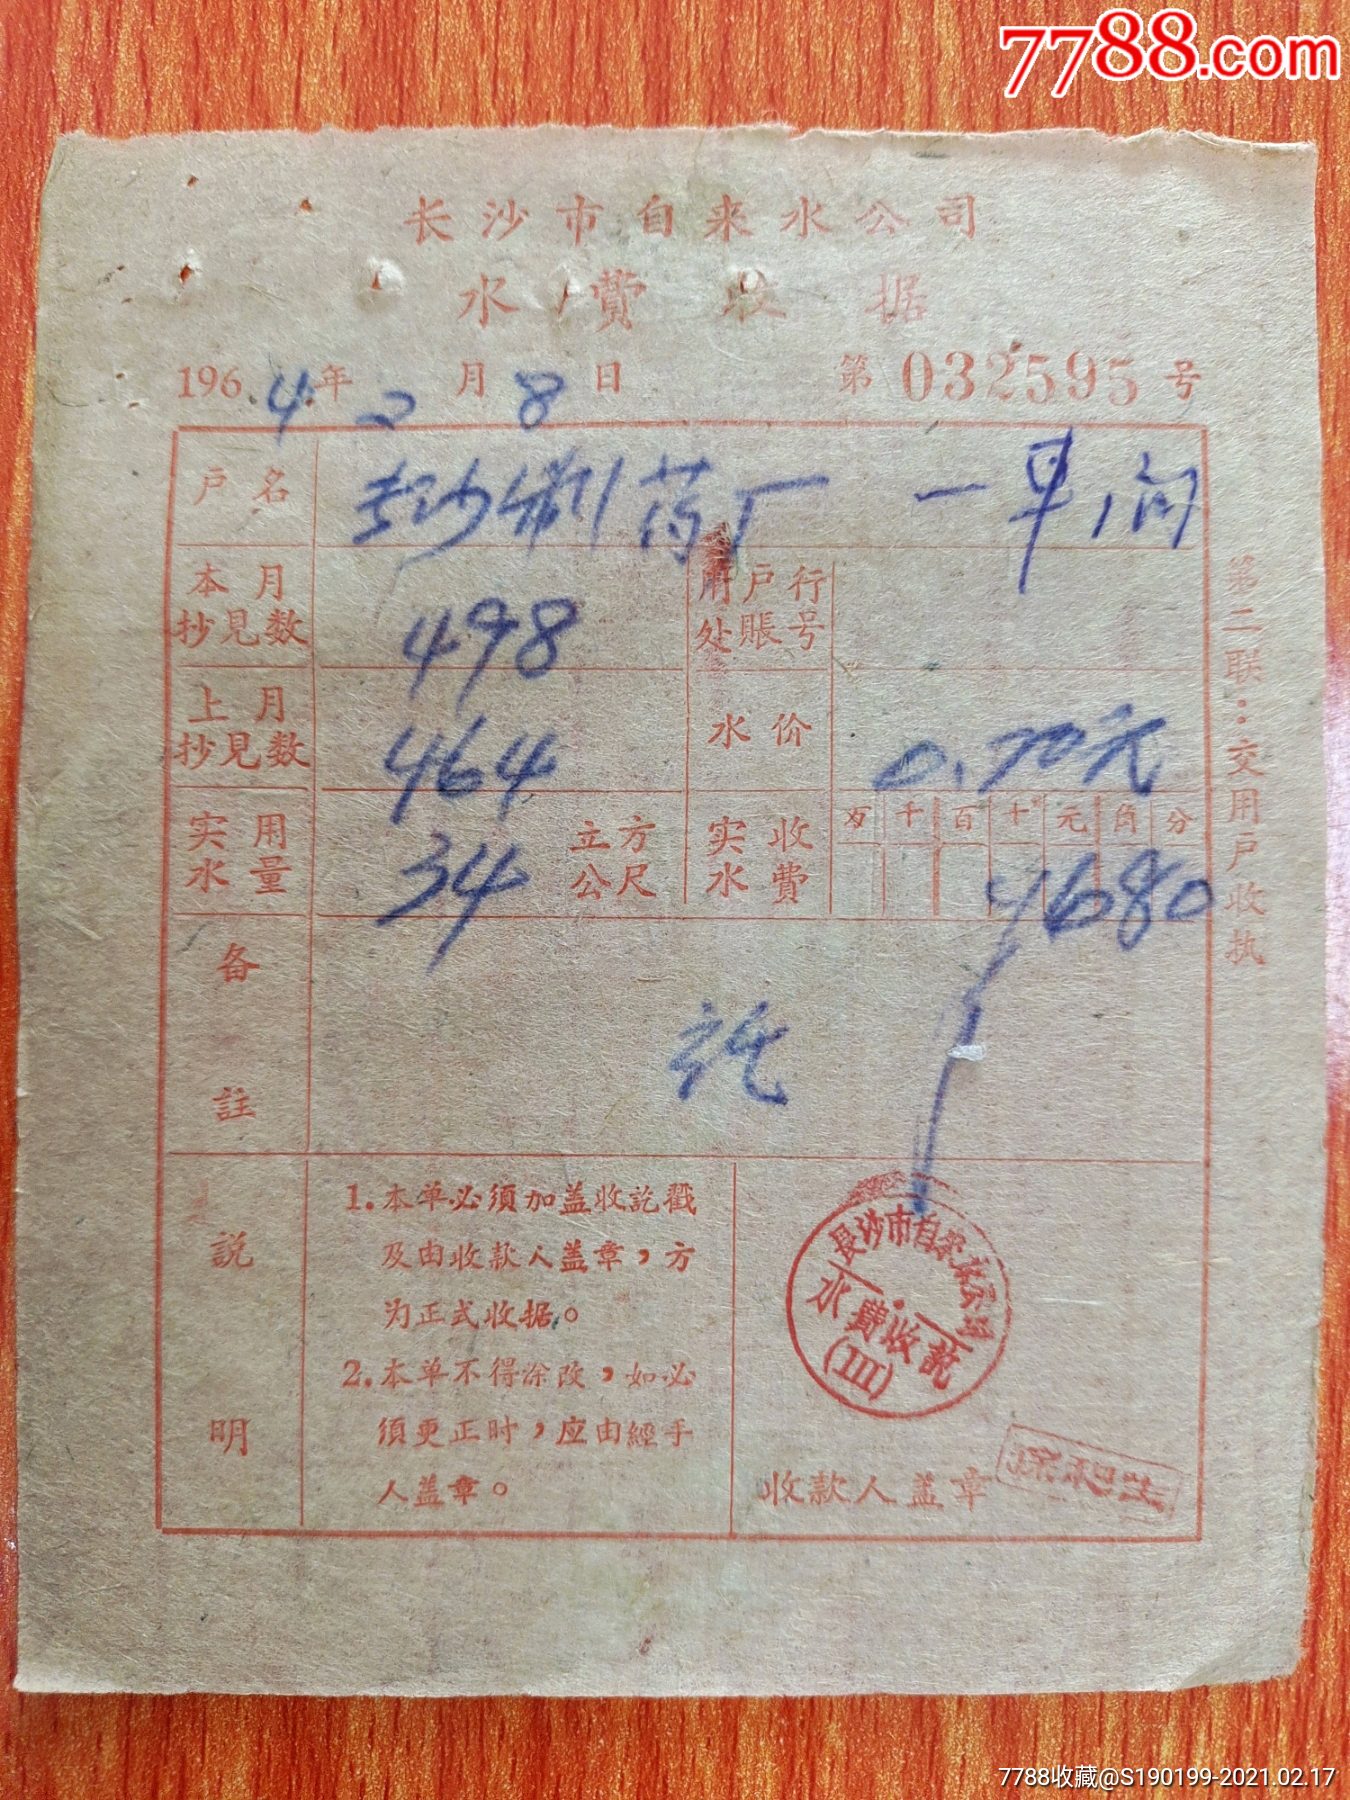 7788.com
长沙市自来水公司
水費收据
1964年2月8日 第032595号
户名 长沙制药厂 一车间
本月抄見数 498 用户行处賬号
上月抄見数 464 水价 0.70元
实用水量 34 立方公尺 实收水費 万千百十元角分 ¥680
备註 讫
説明
1.本单必须加盖收訖戳
及由收款人盖章，方
为正式收据。
2.本单不得涂改，如必
須更正时，应由經手
人盖章。
长沙市自来水公司
水費收訖
(III)
收款人盖章
第二联：交用户收执
7788收藏@S190199-2021.02.17